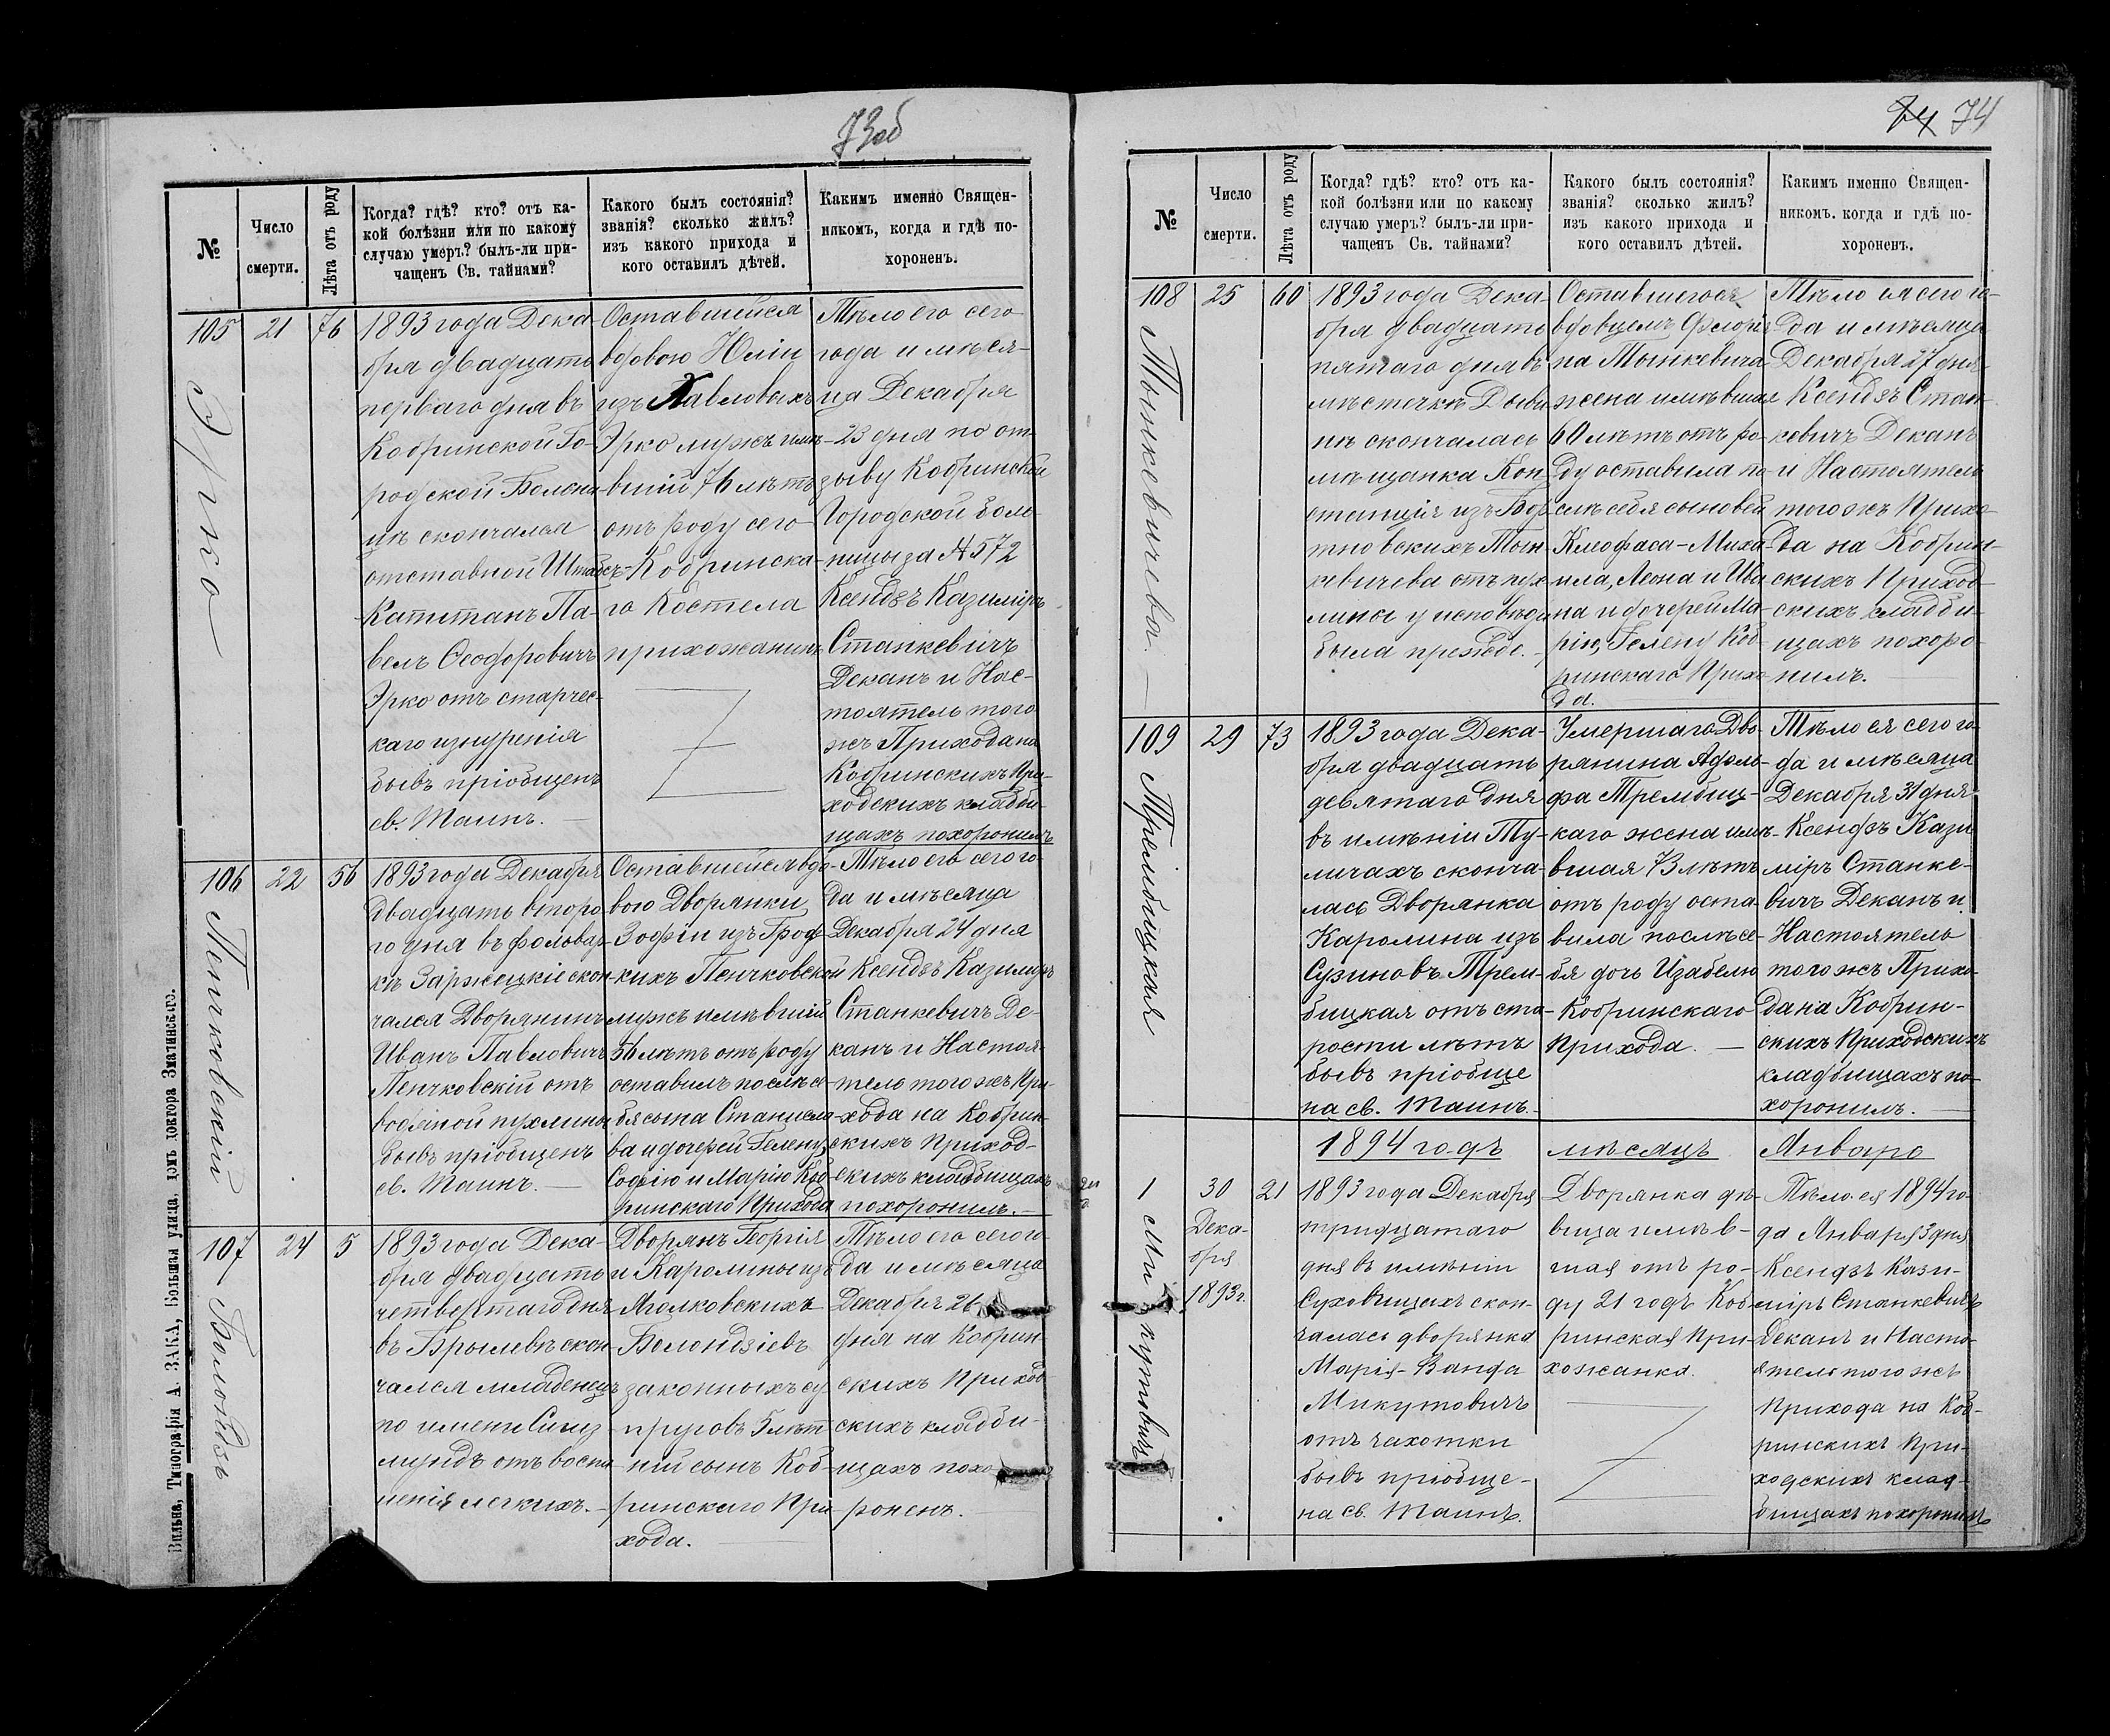 73об
№
Число
смерти.
Лѣта отъ роду
Когда? гдѣ? кто? отъ ка-
кой болѣзни или по какому
случаю умеръ? былъ-ли при-
чащенъ Св. тайнами?
Какого былъ состоянія?
званія? сколько жилъ?
изъ какого прихода и
кого оставилъ дѣтей.
Какимъ именно Священ-
никомъ, когда и гдѣ по-
хороненъ.
105
Эрко
21
76
1893 года Дека-
бря двадцать
перваго дня въ
Кобринской Го-
родской Больни-
цѣ скончался
отставной Штабсъ-
Капитанъ Па-
велъ Ѳеодоровичъ
Эрко отъ старчес-
каго изнуренія
бывъ пріобщенъ
св. Таинъ.
Оставшейся
вдовою Юліи
изъ Павловскихъ
Эрко мужъ имѣ-
вшій 76 лѣтъ
отъ роду сего
Кобринска-
го Костела
прихожанинъ
Тѣло его сего
года и мѣся-
ца Декабря
23 дня по от-
зыву Кобринской
Городской боль-
ницы за № 572
Ксендзъ Казиміръ
Станкевичъ
Деканъ и Нас-
тоятель того
жъ Прихода на
Кобринскихъ При-
ходскихъ кладби-
щахъ похоронилъ
106
Пенчковскій
22
56
1893 года Декабря
Двадцать второ
го дня въ фольвар-
кѣ Заржецкіе скон-
чался Дворянинъ
Иванъ Павловичъ
Пенчковскій отъ
водяной пухлины
бывъ пріобщенъ
св. Таинъ.
Оставшейся вдо-
вою Дворянки
Зофіи изъ Грод-
кихъ Пенчковской
мужъ имѣвшій
56 лѣтъ отъ роду
оставилъ послѣ се-
бя сына Станисла-
ва и дочерей Гелену,
Софію и Марію Коб-
ринскаго Прихода
Тѣло его сего го-
да и мѣсяца
Декабря 24 дня
Ксендзъ Казиміръ
Станкевичъ Де-
канъ и Настоя-
тель того жъ При-
хода на Кобрин-
скихъ Приход-
скихъ кладбищахъ
похоронилъ.
107
Болондзь
24
5
1893 года Дека-
бря двадцать
четвертаго дня
въ Брылевѣ скон-
чался младенецъ
по имени Сигиз-
мундъ отъ воспа-
ленія легкихъ.
Дворянъ Георгія
и Каролины изъ
Яголковскихъ
Болондзіевъ
законныхъ су-
пруговъ 5 лѣт-
ній сынъ Коб-
ринскаго При-
хода.
Тѣло его сего го-
да и мѣсяца
Декабря 26
дня на Кобрин-
скихъ Приход-
скихъ кладби-
щахъ похо-
роненъ.
Вильна, Типографія А. ЗАКА, Большая улица, домъ доктора Зматинскаго.
74
№
Число
смерти.
Лѣта отъ роду
Когда? гдѣ? кто? отъ ка-
кой болѣзни или по какому
случаю умеръ? былъ-ли при-
чащенъ Св. тайнами?
Какого былъ состоянія?
званія? сколько жилъ?
изъ какого прихода и
кого оставилъ дѣтей.
Какимъ именно Священ-
никомъ. когда и гдѣ по-
хороненъ.
108
Тынкевичева.
25
60
1893 года Дека-
бря двадцать
пятаго дня въ
мѣстечкѣ Дыви-
нѣ скончалась
мѣщанка Кон-
станція изъ Бор-
тновскихъ Тын-
кевичева отъ пух-
лины у исповѣди
была прежде.
Оставшегося
вдовцемъ Флорі-
на Тынкевича
жена имѣвшая
60 лѣтъ отъ ро-
ду оставила по-
слѣ себя сыновей
Клеофаса-Миха-
ила, Леона и Ива-
на и дочерей Ма-
рію, Гелену Коб-
ринскаго Прихо-
да.
Тѣло ея сего го-
да и мѣсяца
Декабря 27 дня
Ксендзъ Стан-
кевичъ Деканъ
и Настоятель
того жъ Прихо-
да на Кобрин-
скихъ Приход-
скихъ кладби-
щахъ похоро-
нилъ.
109
Трембицкая
29
73
1893 года Дека-
бря двадцать
девятаго дня
въ имѣніи Ту-
личахъ сконча-
лась Дворянка
Каролина изъ
Сузиновъ Трем-
бицкая отъ ста-
рости лѣтъ
бывъ пріобще
на св. Таинъ.
Умершаго Дво-
рянина Адоль-
фа Трембиц-
каго жена имѣ-
вшая 73 лѣтъ
отъ роду оста-
вила послѣ се-
бя дочь Изабелю
Кобринскаго
Прихода.
Тѣло ея сего го-
да и мѣсяца
Декабря 31 дня
Ксендзъ Кази
міръ Станке-
вичъ Деканъ и
Настоятель
того жъ Прихо-
да на Кобрин-
скихъ Приходскихъ
кладбищахъ по-
хоронилъ.
1894 годъ мѣсяцъ Январь
1
Микутовичъ
30
Дека-
бря
1893 г.
21
1893 года Декабря
тридцатаго
дня въ имѣніи
Суховчицахъ скон-
чалась дворянка
Марія-Ванда
Микутовичъ
отъ чахотки
бывъ пріобще-
на св. Таинъ.
Дворянка дѣ-
вица имѣв-
шая отъ ро-
ду 21 годъ Коб-
ринская При-
хожанка.
Тѣло ея 1894 го-
да Января 3 дня
Ксендзъ Кази-
міръ Станкевичъ
Деканъ и Насто-
ятель того жъ
Прихода на Коб-
ринскихъ При-
ходскихъ клад-
бищахъ похоронилъ